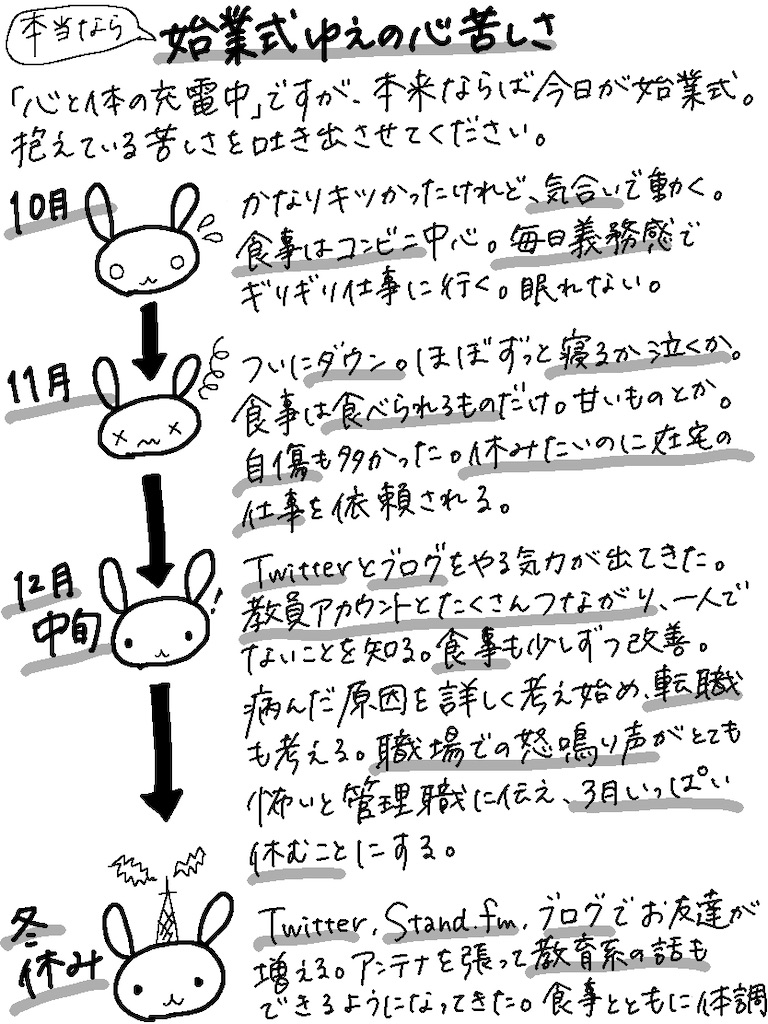 本当なら
始業式ゆえの心苦しさ
「心と体の充電中」ですが、本来ならば今日が始業式。
抱えている苦しさを吐き出させてください。
10月
かなりキツかったけれど、気合いで動く。
食事はコンビニ中心。毎日義務感で
ギリギリ仕事に行く。眠れない。
11月
ついにダウン。ほぼずっと寝るか泣くか。
食事は食べられるものだけ。甘いものとか。
自傷も多かった。休みたいのに在宅の
仕事を依頼される。
12月
中旬
Twitterとブログをやる気力が出てきた。
教員アカウントとたくさんつながり、一人で
ないことを知る。食事も少しずつ改善。
病んだ原因を詳しく考え始め、転職
も考える。職場での怒鳴り声がとても
怖いと管理職に伝え、3月いっぱい
休むことにする。
冬
休み
Twitter, Stand.fm, ブログでお友達が
増える。アンテナを張って教育系の話も
できるようになってきた。食事とともに体調